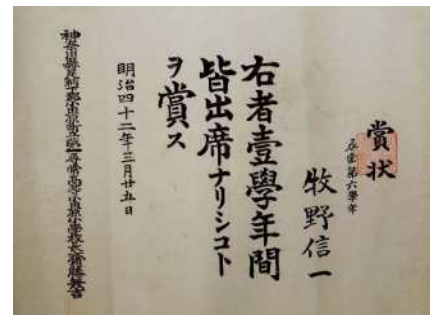 賞状
尋常第六學年
牧野信一
右者壹學年間
皆出席ナリシコト
ヲ賞ス
明治四十二年三月廿五日
神奈川縣足柄下郡小田原町立第一尋常高等小田原小學校長